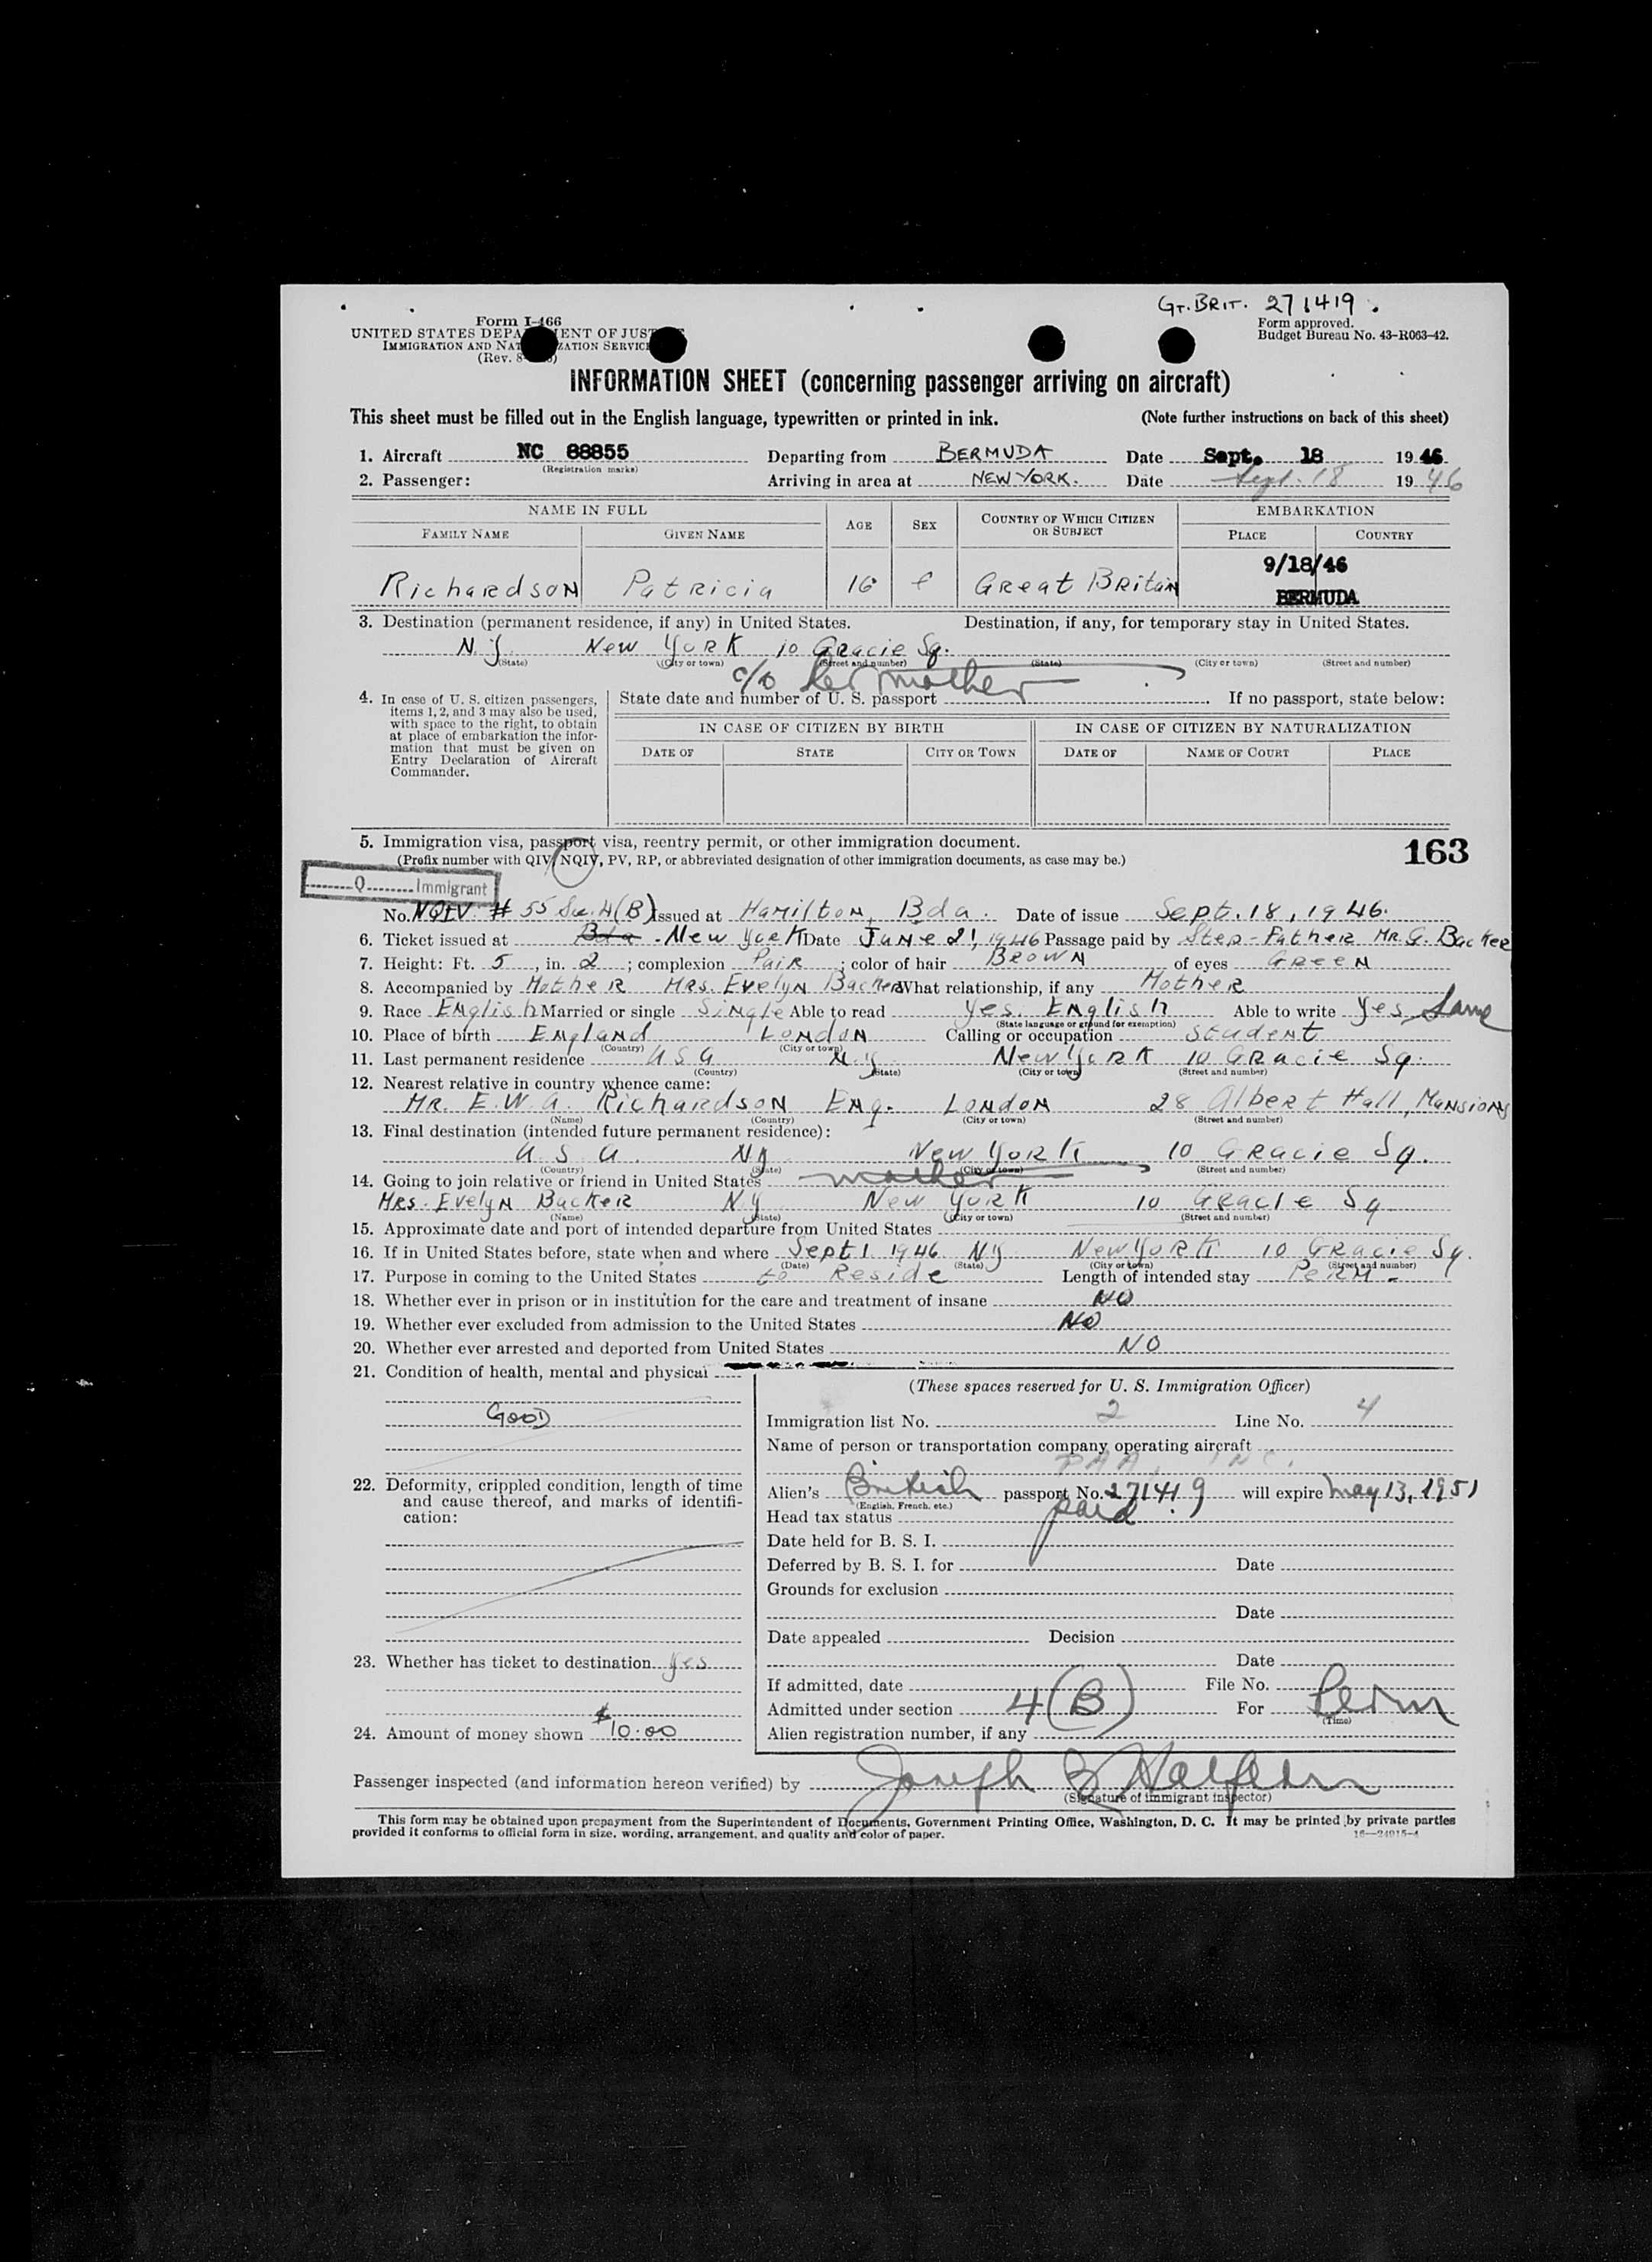 GT. BRIT. 271419.
Form I-466
UNITED STATES DEPA ENT OF JUST
IMMIGRATION AND NAT ZATION SERVICE
(Rev. 8- )
Form approved.
Budget Bureau No. 43-R063-42.
INFORMATION SHEET (concerning passenger arriving on aircraft)
This sheet must be filled out in the English language, typewritten or printed in ink. (Note further instructions on back of this sheet)
1. Aircraft NC 88855 Departing from BERMUDA Date Sept. 18 1946
(Registration marks)
2. Passenger: Arriving in area at NEW YORK. Date Sept. 18 1946
NAME IN FULL AGE SEX COUNTRY OF WHICH CITIZEN OR SUBJECT EMBARKATION
FAMILY NAME GIVEN NAME PLACE COUNTRY
9/18/46
Richardson Patricia 16 f Great Britain BERMUDA
3. Destination (permanent residence, if any) in United States. Destination, if any, for temporary stay in United States.
N.Y. New York 10 Gracie Sq.
(State) (City or town) (Street and number) (State) (City or town) (Street and number)
c/o her mother
4. In case of U. S. citizen passengers, items 1, 2, and 3 may also be used, with space to the right, to obtain at place of embarkation the information that must be given on Entry Declaration of Aircraft Commander.
State date and number of U. S. passport If no passport, state below:
IN CASE OF CITIZEN BY BIRTH IN CASE OF CITIZEN BY NATURALIZATION
DATE OF STATE CITY OR TOWN DATE OF NAME OF COURT PLACE
5. Immigration visa, passport visa, reentry permit, or other immigration document.
(Prefix number with QIV, NQIV, PV, RP, or abbreviated designation of other immigration documents, as case may be.)
163
Q Immigrant
No. NQIV # 55 Sec. 4(B) Issued at Hamilton, Bda. Date of issue Sept. 18, 1946.
6. Ticket issued at Bda. New York Date June 21, 1946 Passage paid by Step-Father Mr. G. Backer
7. Height: Ft. 5, in. 2; complexion Fair; color of hair Brown of eyes Green
8. Accompanied by Mother Mrs. Evelyn Backer What relationship, if any Mother
9. Race English Married or single Single Able to read Yes. English Able to write Yes, Same
(State language or ground for exemption)
10. Place of birth England London Calling or occupation Student
(Country) (City or town)
11. Last permanent residence USA N.Y. New York 10 Gracie Sq.
(Country) (State) (City or town) (Street and number)
12. Nearest relative in country whence came:
Mr. E. W. A. Richardson Eng. London 28 Albert Hall, Mansions
(Name) (Country) (City or town) (Street and number)
13. Final destination (intended future permanent residence):
U.S.A. NY New York 10 Gracie Sq.
(Country) (State) (City or town) (Street and number)
14. Going to join relative or friend in United States mother
Mrs. Evelyn Backer N.Y New York 10 Gracie Sq
(Name) (State) (City or town) (Street and number)
15. Approximate date and port of intended departure from United States
16. If in United States before, state when and where Sept 1. 1946 NY New York 10 Gracie Sq.
(Date) (State) (City or town) (Street and number)
17. Purpose in coming to the United States to Reside Length of intended stay Perm.
18. Whether ever in prison or in institution for the care and treatment of insane NO
19. Whether ever excluded from admission to the United States NO
20. Whether ever arrested and deported from United States NO
21. Condition of health, mental and physical
GOOD
22. Deformity, crippled condition, length of time and cause thereof, and marks of identification:
23. Whether has ticket to destination Yes
24. Amount of money shown $10.00
(These spaces reserved for U. S. Immigration Officer)
Immigration list No. 2 Line No. 4
Name of person or transportation company operating aircraft
PAA, INC.
Alien's British passport No. 271419 will expire May 13, 1951
(English, French, etc.)
Head tax status paid
Date held for B. S. I.
Deferred by B. S. I. for Date
Grounds for exclusion
Date
Date appealed Decision
Date
If admitted, date File No.
Admitted under section 4(B) For Perm
(Time)
Alien registration number, if any
Passenger inspected (and information hereon verified) by Joseph
(Signature of immigrant inspector)
This form may be obtained upon prepayment from the Superintendent of Documents, Government Printing Office, Washington, D. C. It may be printed by private parties
provided it conforms to official form in size, wording, arrangement, and quality and color of paper. 16—24915-4